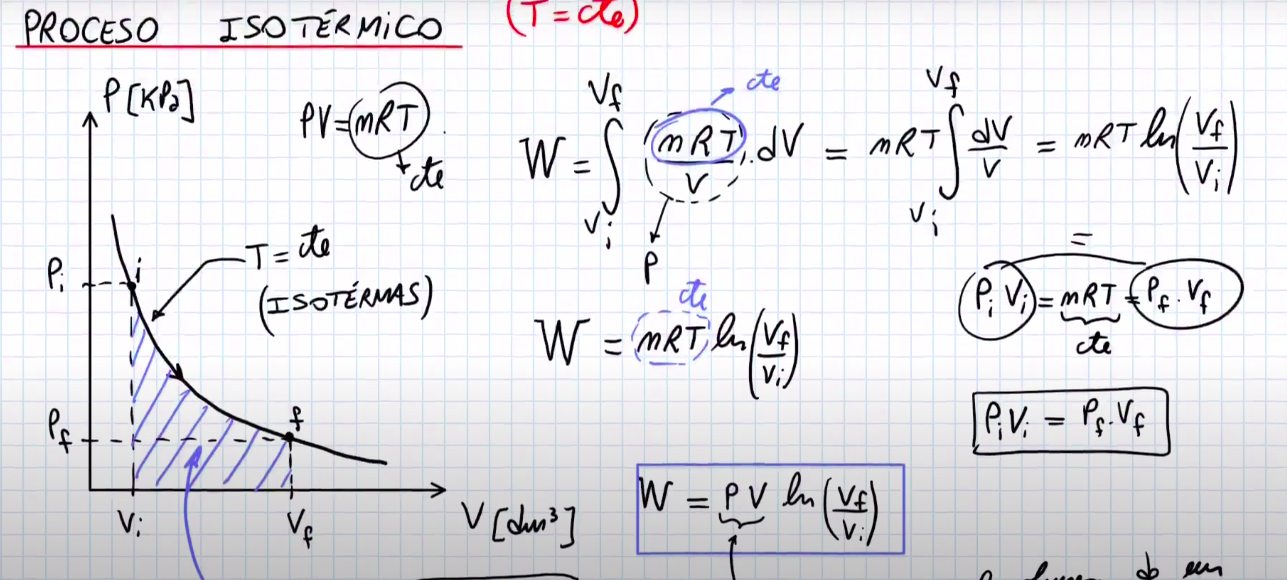 PROCESO ISOTÉRMICO (T = cte)
P [KPa]
PV = mRT
cte
T = cte
(ISOTÉRMAS)
Pi
i
Pf
f
Vi
Vf
V [dm³]
W = ∫ Vi Vf mRT/V . dV = mRT ∫ Vi Vf dV/V = mRT ln(Vf/Vi)
cte
P
=
Pi Vi = mRT = Pf . Vf
cte
W = mRT ln(Vf/Vi)
cte
Pi Vi = Pf . Vf
W = PV ln(Vf/Vi)